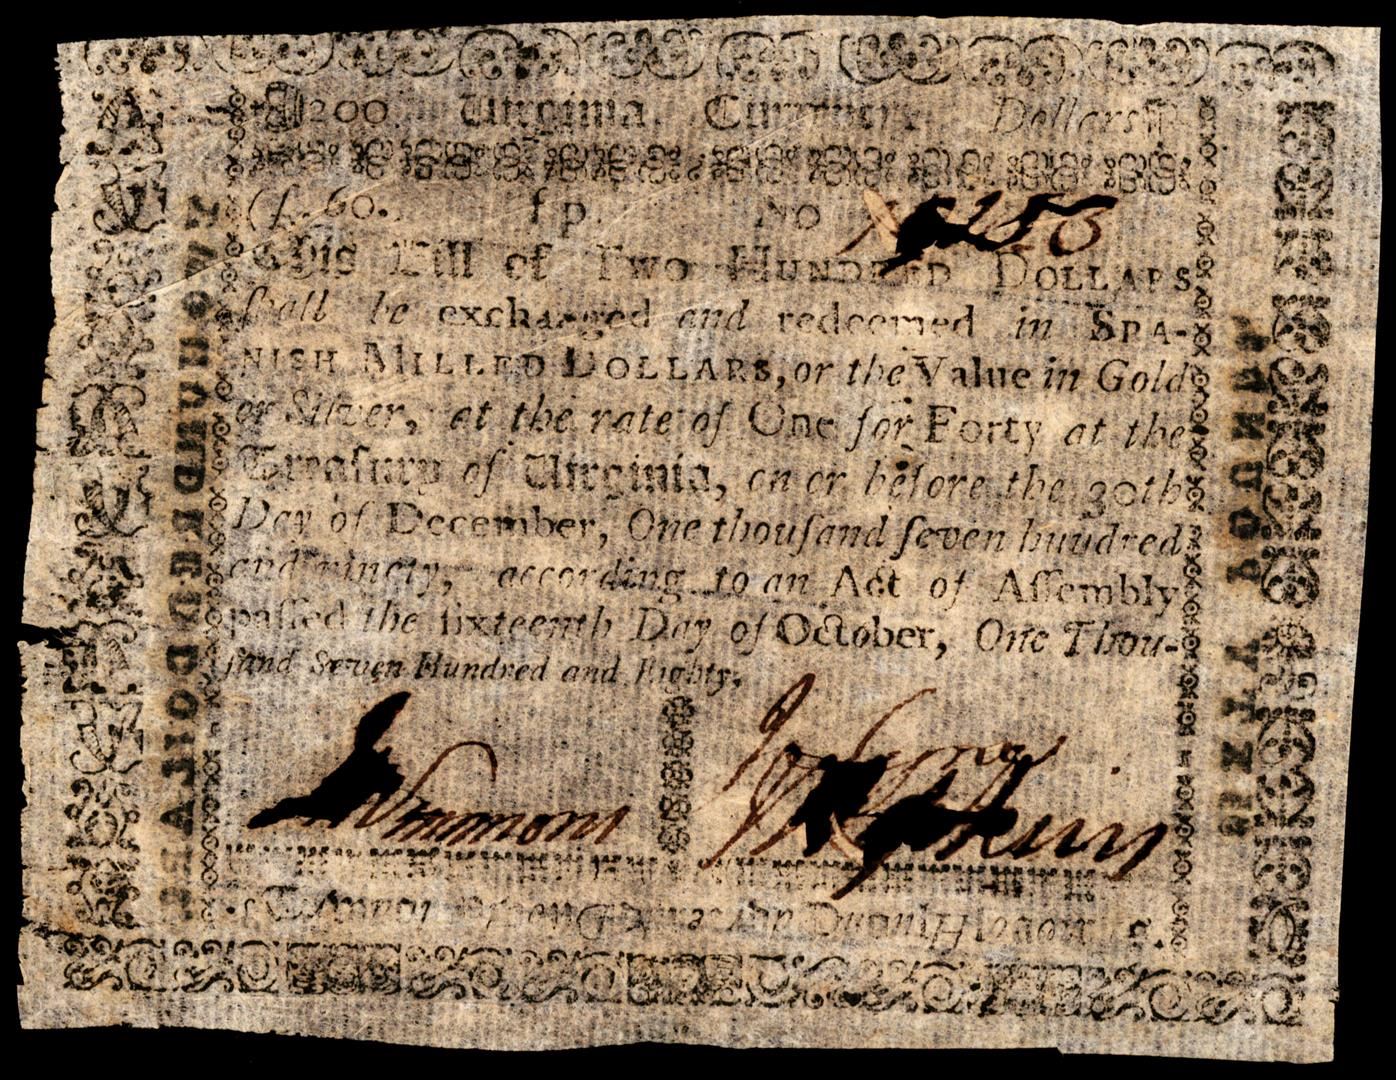 200 Virginia Currency. Dollars
(£. 60. f p. No
This Bill of TWO HUNDRED DOLLARS
ſhall be exchanged and redeemed in SPA-
NISH MILLED DOLLARS, or the Value in Gold
or Silver, at the rate of One for Forty at the
Treaſury of Virginia, on or before the 30th
Day of December, One thouſand ſeven huudred
and ninety, according to an Act of Aſſembly
paſſed the ſixteenth Day of October, One Thou-
ſand Seven Hundred and Eighty.
Simmons
J Hopkins
TWO HUNDRED DOLLARS